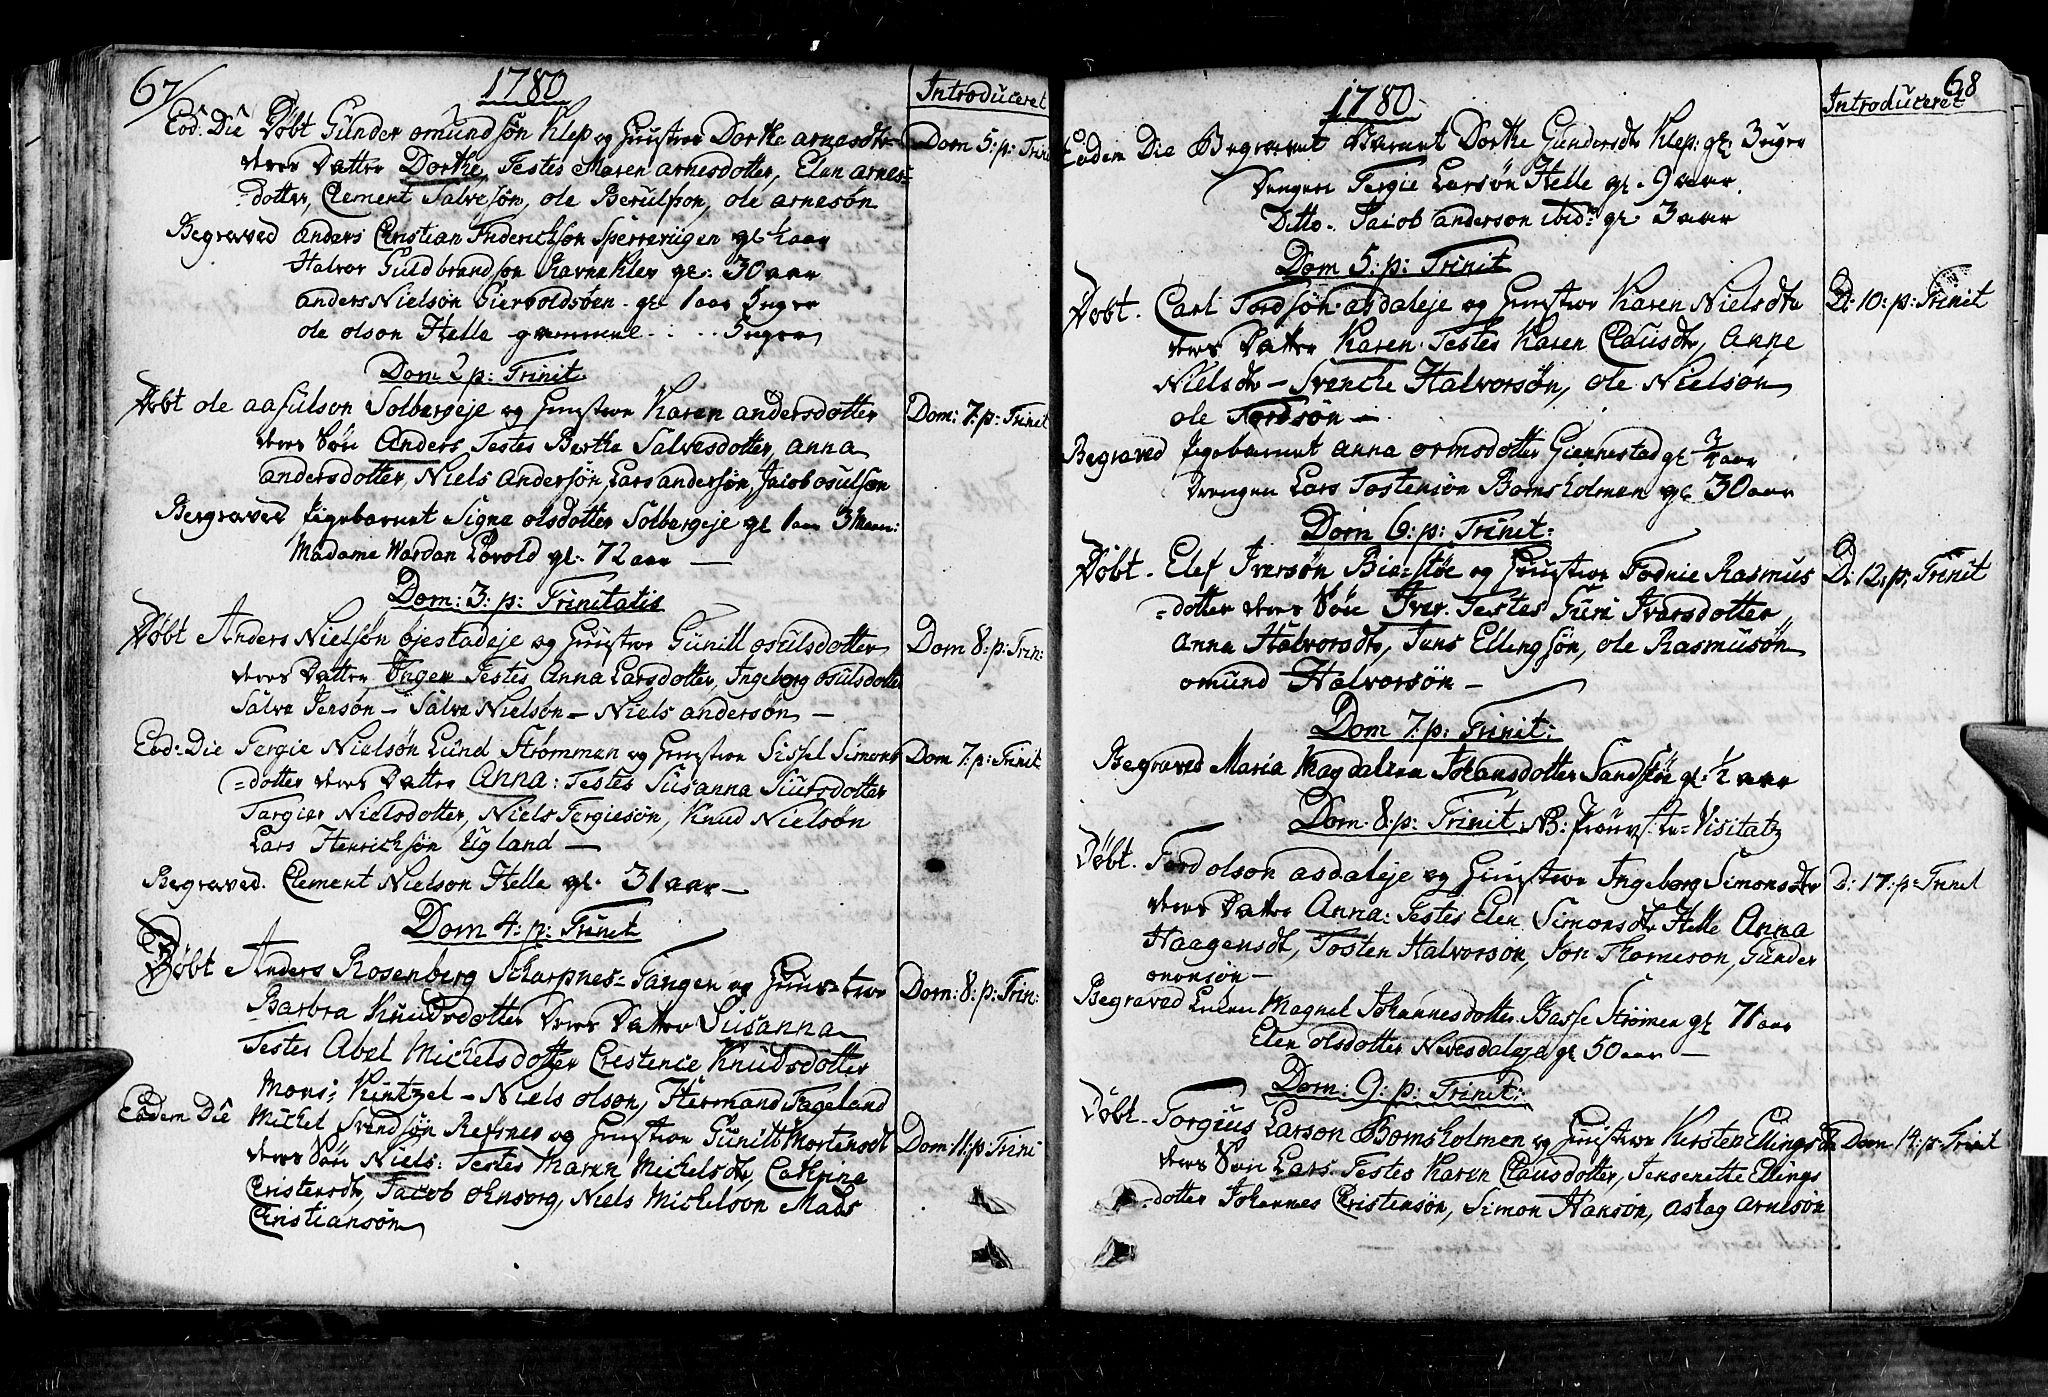 67/
1780
Introduceret
Eod. Die Døbt Gunder omundsøn Klep og Hustroe Dorthe arnesdtr Dom 5:p: Trin
deres Datter Dorthe, Testes Maren arnesdotter, Elen arnes-
dotter, Clement Salvesøn, ole Berulfson, ole arnesøn
Begraved anders Christian Friderichsøn Sperreviigen gl ½ aar
Halvor Guldbrandsøn gl: 30 aar
anders Nielsøn gl 1 aar uger
ole olson Helle gammel 5 uger
Dom. 2 p: Trinit.
Døbt ole aasulson Solbergeje og Hustroe Karen andersdotter Dom: 7:p: Trinit
deres Søn Anders Testes Berthe Salvesdotter, anna
andersdotter, Niels andersøn, Lars andersøn, Jacob osulsøn
Begraved Pigebarnet Signe olsdotter Solbergeje gl 1 aar 3 Maan:
Madame Wardan gl. 72 aar —
Dom: 3: p: Trinitatis
Døbt Anders Nielsøn øjestadeje og Hustroe Gunill osulsdotter Dom 8:p: Trin:
deres Datter Inger Testes Anna Larsdotter, Ingeborg osulsdotter
Salve Jensøn – Salve Nielsøn – Niels andersøn –
Eod: Die Tergie Nielsøn Lund Strømmen og Hustroe Sissel Simons Dom 7:p: Trinit
=dotter deres Datter Anna: Testes Susanna Siursdotter
Targier Nielsdotter, Niels Tergiesøn, Knud Nielsøn
Lars Henrichsøn Ugland —
Begraved. Clement Nielsøn Helle gl. 31 aar —
Dom 4: p: Trinit
Døbt Anders Rosenberg Scharpnes=Tangen og Huus=troe Dom: 8: p: Trin:
Barbra Knudsdotter Deres Datter Susanna
Testes Abel Michelsdotter Cristence Knudsdotter
Mons: Kintzel – Niels olson, Hermand Fageland
Eadem Die Michel Svendsøn Refsnes og Hustroe Gunill Mortensdt Dom: 11: p: Trini
deres Søn Niels: Testes Maren Michelsdtr, Cathrine
Cristensdtr, Jacob ohnsorg, Niels Michelson Mads
Christiansøn
68
1780
Introduceret
Eadem Die Begravet Barnet Dorthe Gundersdtr Klep: gl: 3 uger
Drengen Tergie Larsøn Helle gl. 9 aar.
Ditto. Jacob anderson ibid: gl 3 aar
Dom 5: p: Trinit
Døbt. Carl Tordsøn asdaleje og Hustroe Karen Nielsdtr D: 10: p: Trinit
deres Datter Karen. Testes Karen Clausdtr, Anne
Nielsdtr – Svenche Halvorsøn, ole Nielsøn
ole Tordsøn —
Begraved Pigebarnet anna ormsdotter Giennestad gl aar
Drengen Lars Tostensøn Bomsholmen gl. 30 aar
Dom 6: p: Trinit:
Døbt. Elef Iversøn og Hustroe Todnie Rasmus D: 12: p: Trinit
=dotter deres Søn Iver. Testes Guri Ivarsdotter
Anna Halvorsdtr, Jens Ellingsøn, ole Rasmusøn
omund Halvorsøn —
Dom 7: p: Trinit:
Begraved Maria Magdalena Johansdotter gl: ½ aar
Dom. 8: p: Trinit. NB: Visitatz
Døbt. Tord olson asdaleje og Hustroe Ingeborg Simonsdtr D: 17: p: Trinit
deres Datter Anna: Testes Elen Simonsdtr Helle Anna
Haagensdt, Tosten Halvorsøn, Jon Thomeson, Gunder
—
Begraved Magnel Johannesdotter Basse Strømen gl 71 aar
Elen olsdotter Nersdaleje gl 50 aar —
Dom: 9: p: Trinit:
Døbt. Torgius Larson Bomsholmen og Hustroe Kirsten Ellings Dom. 14: p: Trinit
deres Søn Lars. Testes Karen Clausdotter, Jensenette Ellings
dotter Johannes Christensøn, Simon Hansøn, aslag arnesøn